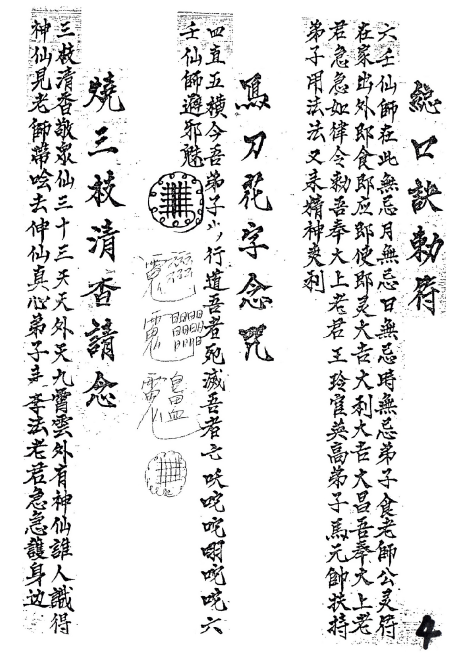 總口訣勅符
六壬仙師在此無忌月無忌日無忌時無忌弟子食老師公灵符
在家出外即食即应即使即灵大吉大利大吉大昌吾奉太上老
君急急如律令勅吾奉太上老君王玲官英高弟子馬元帥扶持
弟子用法法又来精神爽利
馬刀花字念咒
四直五横今吾弟子 行道吾者死滅吾者亡 六
壬仙師遊邪魅
燒三枝清香請念
三枝清香敬衆仙三十三天天外天九霄雲外有神仙誰人識得
神仙見老師帶唸去仲仙真心弟子来 法老君急急護身边
4